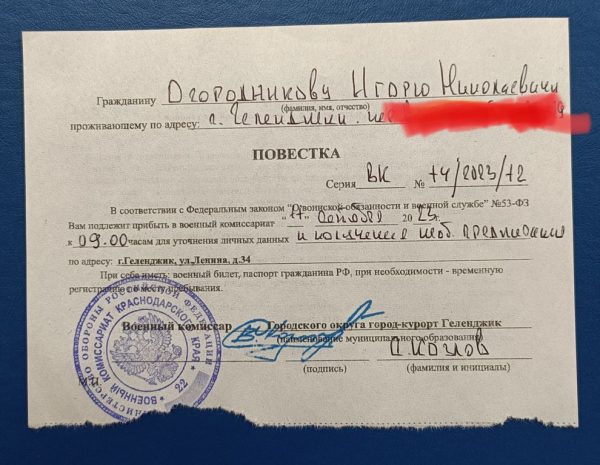 Гражданину Огородникову Игорю Николаевичу
(фамилия, имя, отчество)
проживающему по адресу: г. Геленджик
ПОВЕСТКА
Серия ВК № 74/2023/12
В соответствии с Федеральным законом "О воинской обязанности и военной службе" №53-ФЗ
Вам подлежит прибыть в военный комиссариат "17" 20
к 09.00 часам для уточнения личных данных и получения моб. предписания
по адресу: г.Геленджик, ул.Ленина, д.34
При себе иметь: военный билет, паспорт гражданина РФ, при необходимости - временную
регистрацию по месту пребывания.
Военный комиссар Городского округа город-курорт Геленджик
(наименование муниципального образования)
С.Козлов
(подпись) (фамилия и инициалы)
М.П.
МИНИСТЕРСТВО ОБОРОНЫ РОССИЙСКОЙ ФЕДЕРАЦИИ
ВОЕННЫЙ КОМИССАРИАТ КРАСНОДАРСКОГО КРАЯ
* 22 *